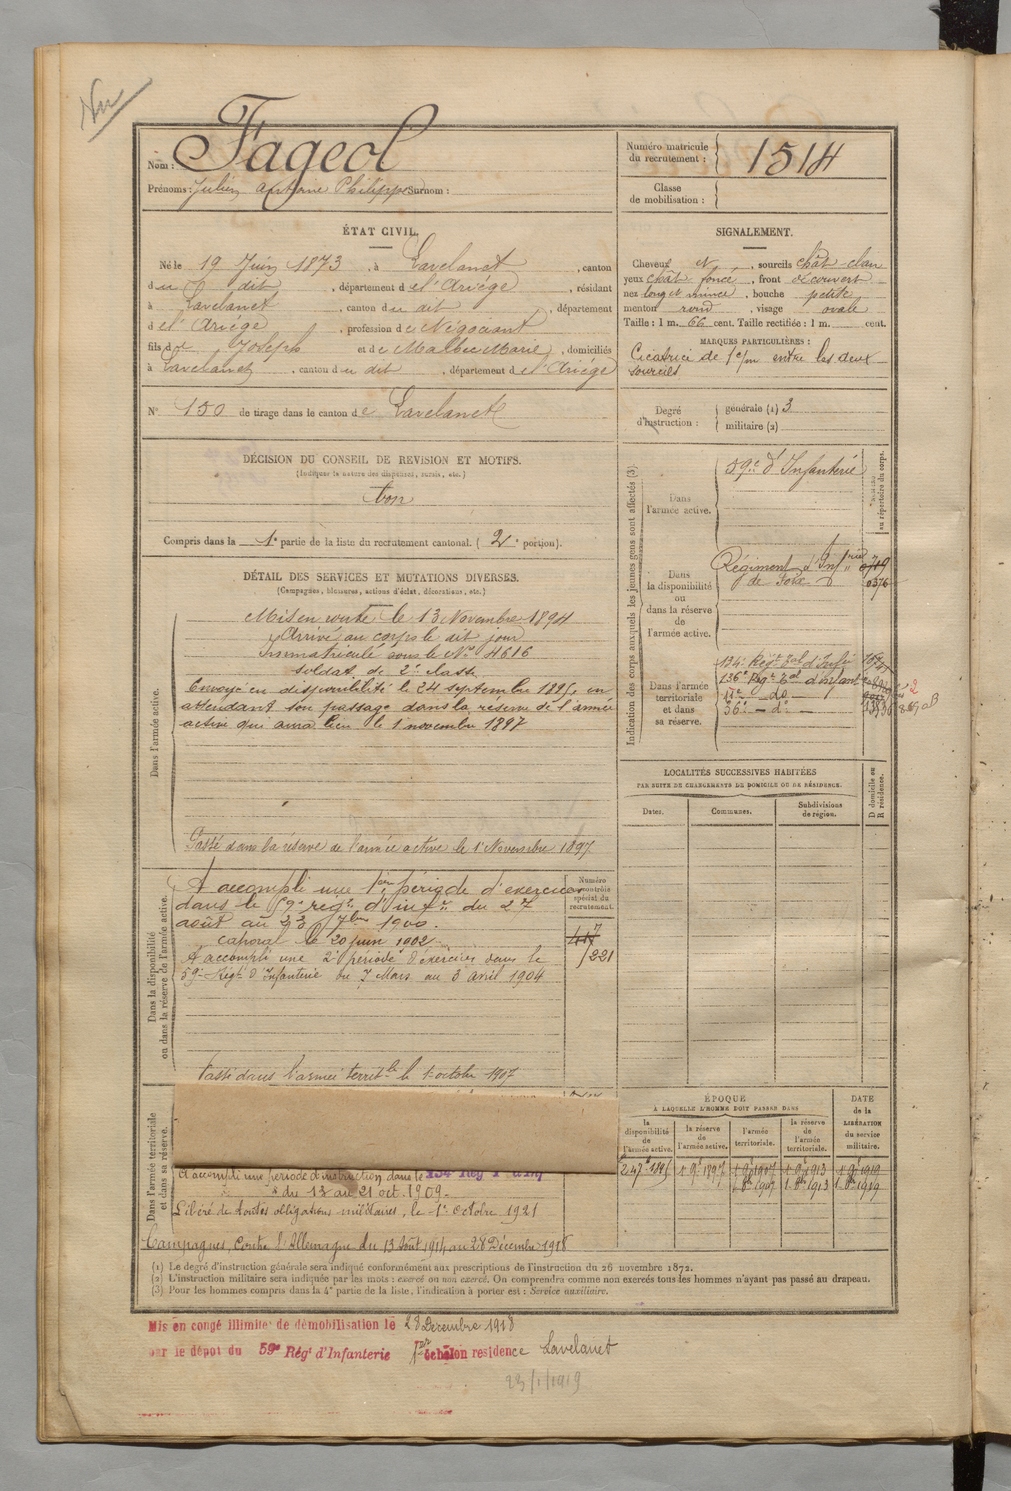 Nom : Fageol
Prénoms : Julien Antoine Philippe Surnom :
Numéro matricule du recrutement : 1514
Classe de mobilisation :
ÉTAT CIVIL.
Né le 19 Juin 1873, à Lavelanet, canton
du dit, département de l'Ariège, résidant
à Lavelanet, canton du dit, département
de l'Ariège, profession de Négociant
fils de Joseph et de Malbec Marie, domiciliés
à Lavelanet, canton du dit, département de l'Ariége
N° 150 de tirage dans le canton de Lavelanet
SIGNALEMENT.
Cheveux N, sourcils chât. clair
yeux chât foncé, front découvert
nez long et mince, bouche petite
menton rond, visage ovale
Taille : 1 m. 66 cent. Taille rectifiée : 1 m. cent.
MARQUES PARTICULIÈRES :
Cicatrice de 1 c/m entre les deux
sourcils
Degré d'instruction :
générale (1) 3
militaire (2)
DÉCISION DU CONSEIL DE REVISION ET MOTIFS.
(Indiquer la nature des dispenses, sursis, etc.)
bon
Compris dans la 1e partie de la liste du recrutement cantonal. ( 2e portion).
DÉTAIL DES SERVICES ET MUTATIONS DIVERSES.
(Campagnes, blessures, actions d'éclat, décorations, etc.)
Dans l'armée active.
Mis en route le 13 Novembre 1894
Arrivé au corps le dit jour
Immatriculé sous le N° 4616
soldat de 2e classe
Envoyé en disponibilité le 24 septembre 1895, en
attendant son passage dans la réserve de l'armée
active qui aura lieu le 1 novembre 1897
Passé dans la réserve de l'armée active le 1 Novembre 1897
Dans la disponibilité
ou dans la réserve de l'armée active.
A accompli une 1ère période d'exercices
dans le 59e régt d'infie du 27
août au 23 7bre 1900.
caporal le 20 juin 1902
A accompli une 2e période d'exercices dans le
59e Régt d'Infanterie du 7 Mars au 3 avril 1904
Passé dans l'armée territle le 1 octobre 1907
Numéro au contrôle spécial du recrutement.
417
221
Dans l'armée territoriale
et dans sa réserve.
A accompli une période d'instruction dans le 134e Rég T d'Inf
du 13 au 21 oct. 1909.
Libéré de toutes obligations militaires, le 1er Octobre 1921
Campagnes, Contre l'Allemagne du 13 Août 1914 au 28 Décembre 1918
Indication des corps auxquels les jeunes gens sont affectés (3).
Dans l'armée active.
59e d'Infanterie
Dans la disponibilité ou dans la réserve de l'armée active.
Régiment d'Infrie
de Foix
0376
Dans l'armée territoriale et dans sa réserve.
134e Régt Tal d'Infie
136e Régt Tal d'Infant
36e - do -
au répertoire du corps.
LOCALITÉS SUCCESSIVES HABITÉES
PAR SUITE DE CHANGEMENTS DE DOMICILE OU DE RÉSIDENCE.
Dates.
Communes.
Subdivisions de région.
D domicile ou R résidence.
ÉPOQUE
A LAQUELLE L'HOMME DOIT PASSER DANS
la disponibilité de l'armée active.
la réserve de l'armée active.
l'armée territoriale.
la réserve de l'armée territoriale.
DATE de la LIBÉRATION du service militaire.
24 7e 1895
1 9e 1897
1 9e 1907
1 9e 1913
1 9e 1919
1 8bre 1907
1 8bre 1913
1 8bre 1919
(1) Le degré d'instruction générale sera indiqué conformément aux prescriptions de l'instruction du 26 novembre 1872.
(2) L'instruction militaire sera indiquée par les mots : exercé ou non exercé. On comprendra comme non exercés tous les hommes n'ayant pas passé au drapeau.
(3) Pour les hommes compris dans la 4e partie de la liste, l'indication à porter est : Service auxiliaire.
Mis en congé illimité de démobilisation le 28 Décembre 1918
par le dépot du 59e Régt d'Infanterie 1er échelon residence Lavelanet
23/1/1919